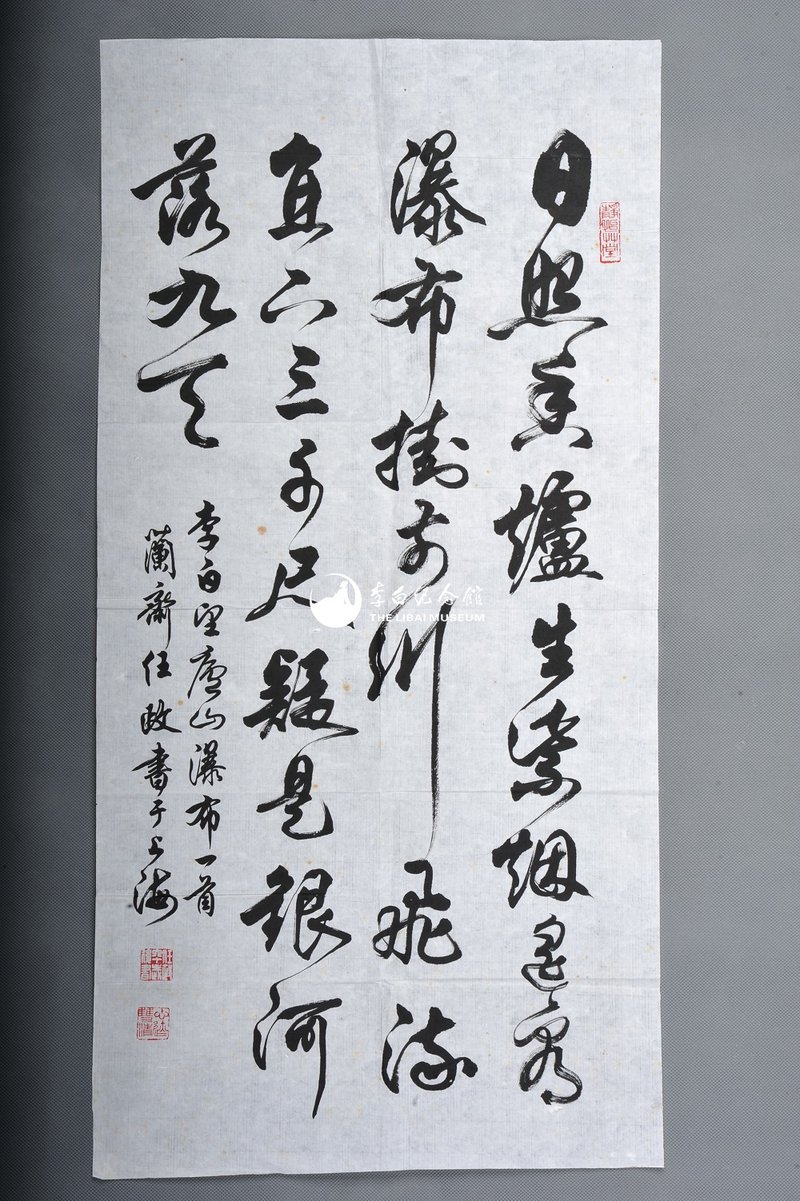 日照香爐生紫烟遙看
瀑布掛前川飛流
直下三千尺疑是銀河
落九天
李白望廬山瀑布一首
蘭齋任政書于上海
李白纪念館
THE LIBAI MUSEUM